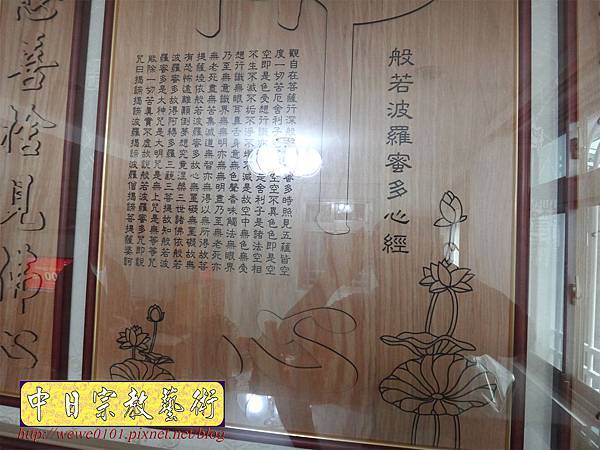 般若波羅蜜多心經
觀自在菩薩行深般
蜜多時照見五蘊皆空
度一切苦厄舍利子
空不異色色即是空
空即是色受想行識亦
是舍利子是諸法空相
不生不滅不垢不淨不增
減是故空中無色無受
想行識無眼耳鼻舌身意無色聲香味觸法無眼界
乃至無意識界無無明亦無無明盡乃至無老死亦
無老死盡無苦集滅道無智亦無得以無所得故菩
提薩埵依般若波羅蜜多故心無罣礙無罣礙故無
有恐怖遠離顛倒夢想究竟涅槃三世諸佛依般若
波羅蜜多故得阿耨多羅三藐三菩提故知般若波
羅蜜多是大神咒是大明咒是無上咒是無等等咒
能除一切苦真實不虛故說般若波羅蜜多咒即說
咒曰揭諦揭諦波羅揭諦波羅僧揭諦菩提薩婆訶
善捨見佛心
中日宗教藝術
http://wewe0101.pixnet.net/blog